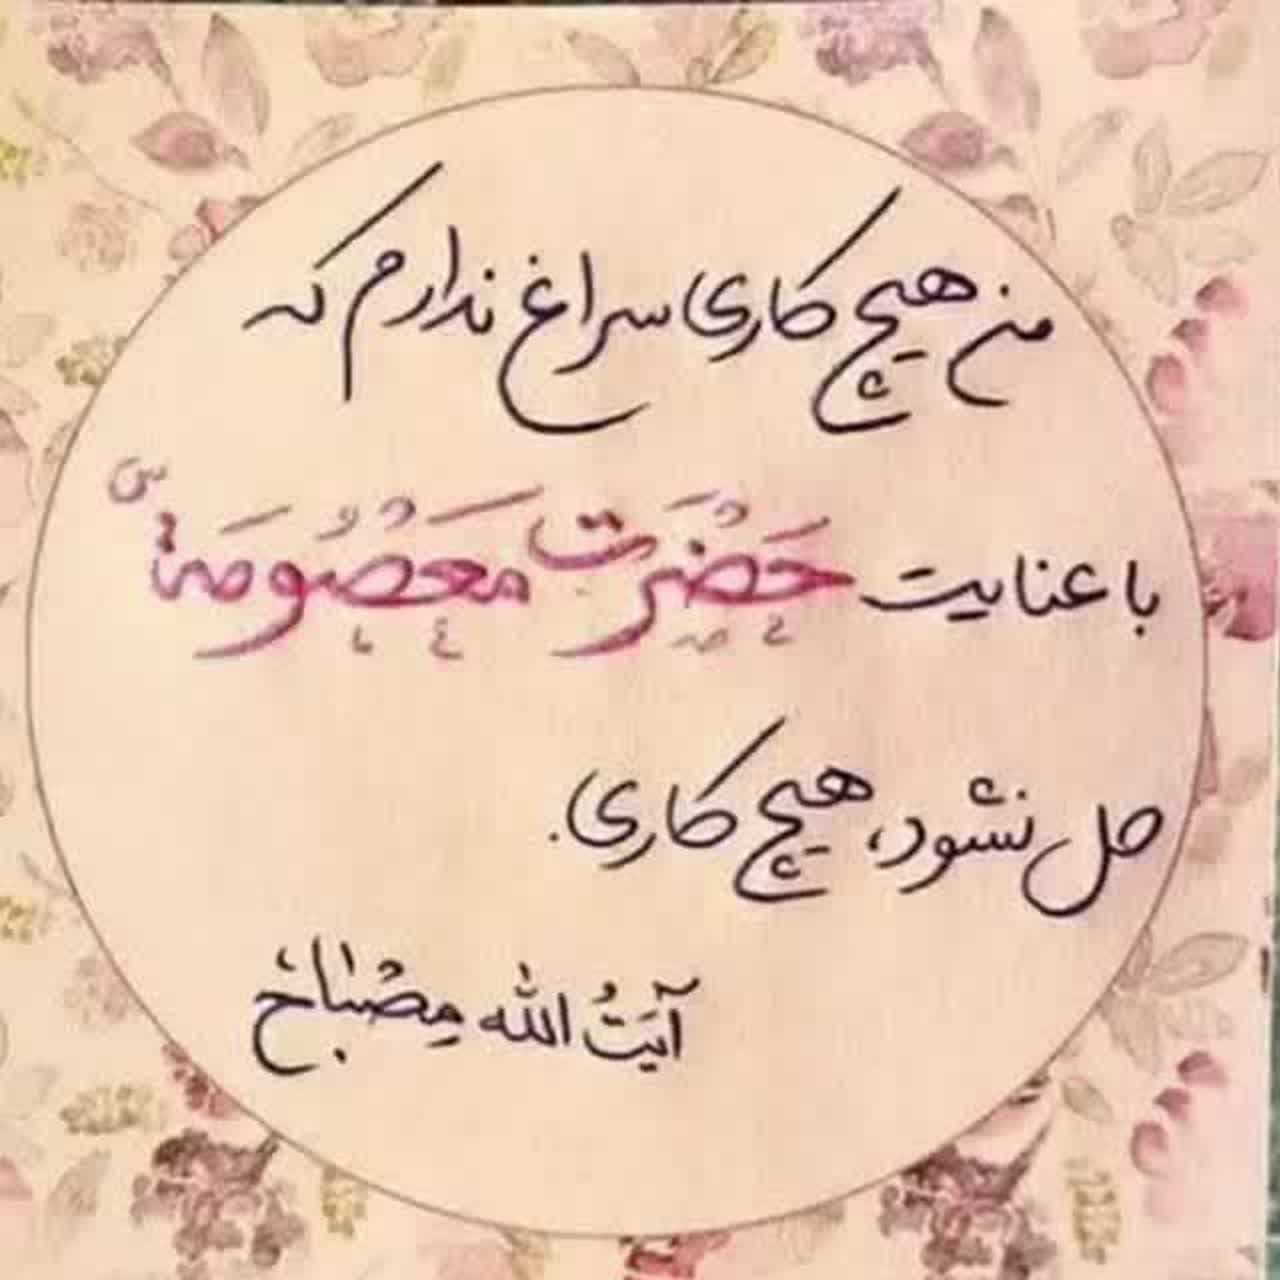 من هیچ کاری سراغ ندارم که
با عنایت حَضْرَت مَعَصُومَة س
حل نشود، هیچ کاری.
آیَتُ الله مِصْباح